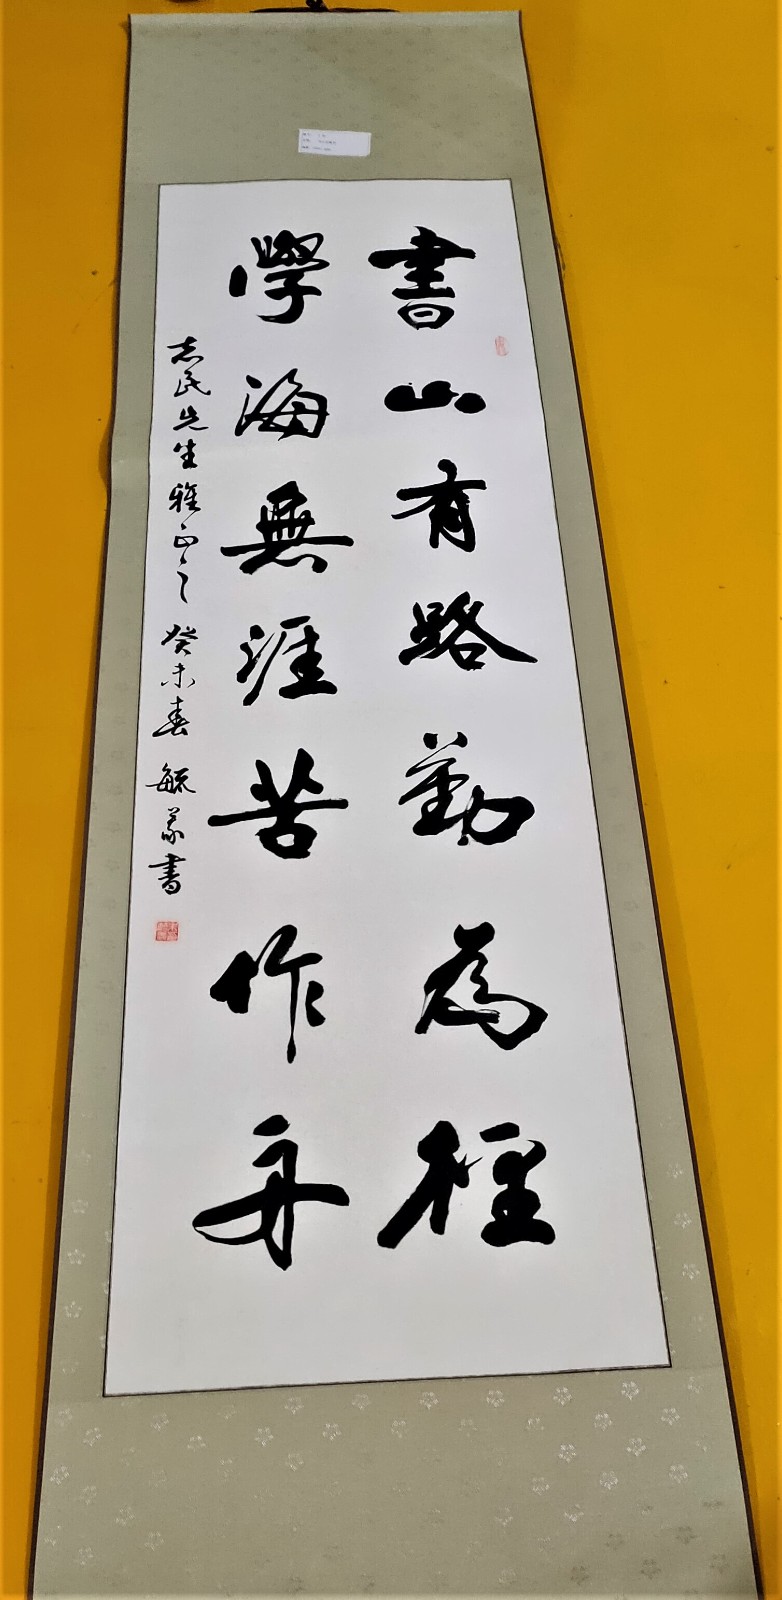 書山有路勤為徑
學海無涯苦作舟
志民先生雅正之 癸未春 毓豪書